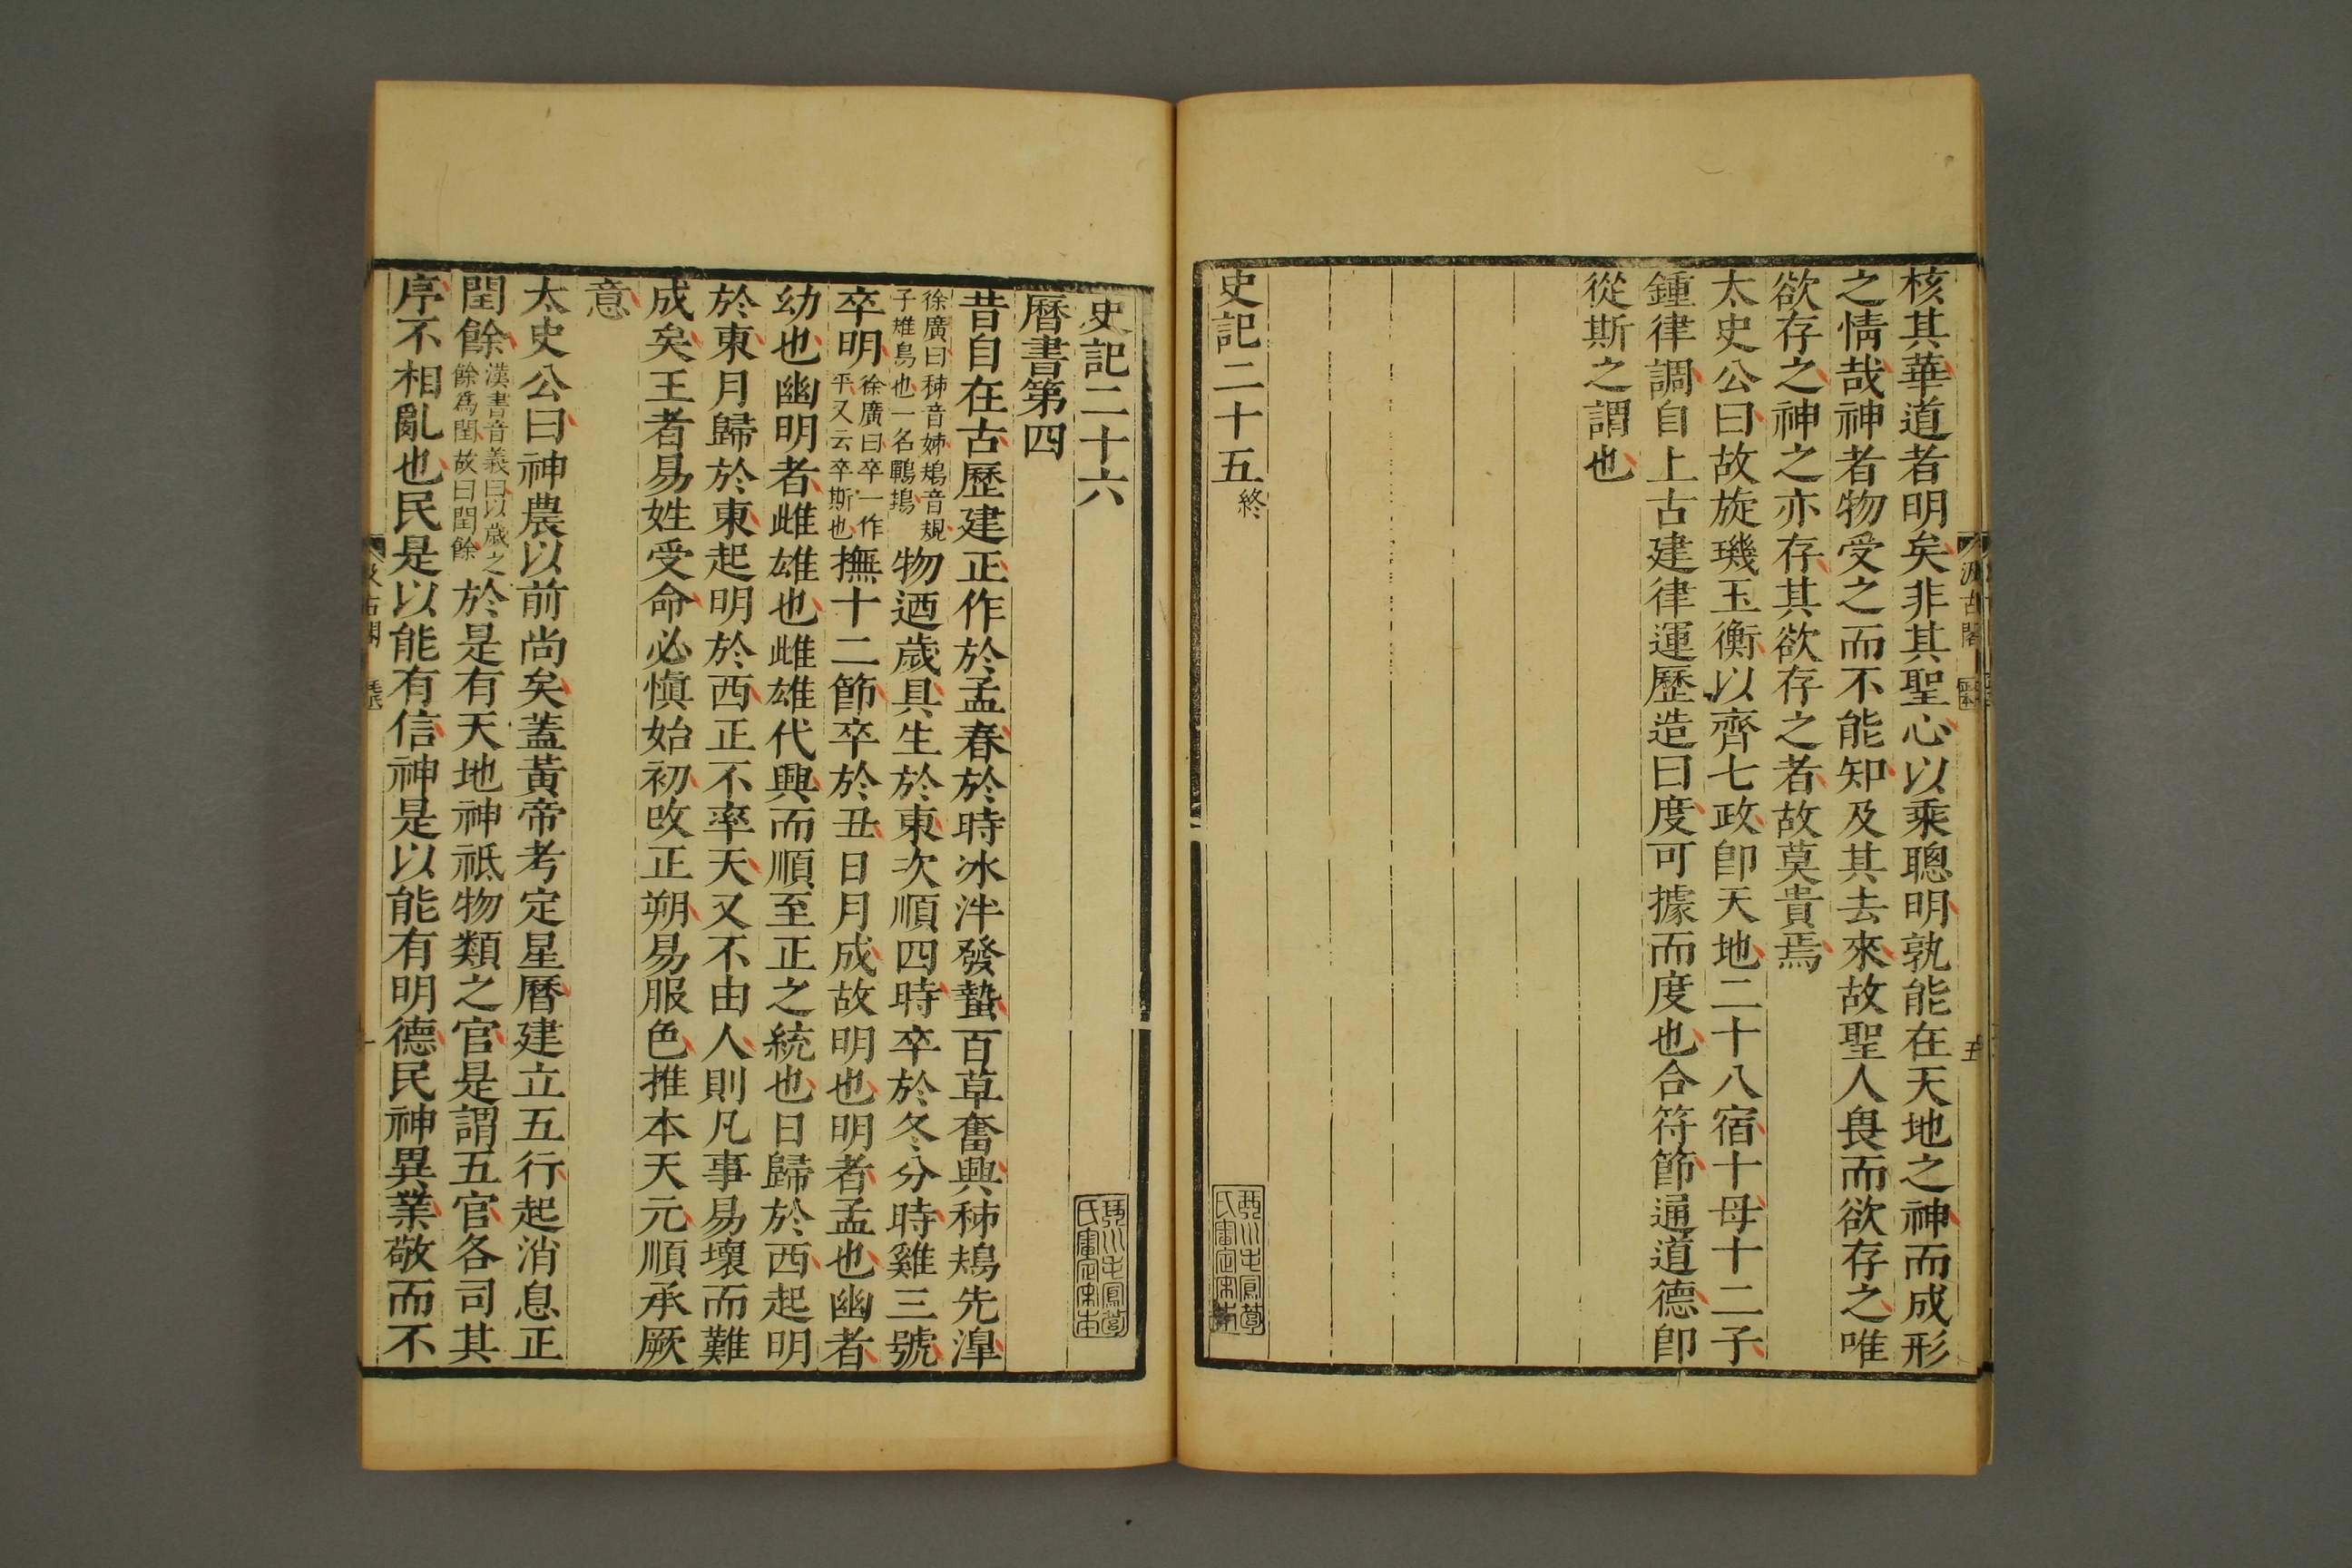 核其華道者明矣非其聖心以乘聰明孰能在天地之神而成形
之情哉神者物受之而不能知及其去來故聖人畏而欲存之唯
欲存之神之亦存其欲存之者故莫貴焉
太史公曰故旋璣玉衡以齊七政卽天地二十八宿十母十二子
鍾律調自上古建律運歷造日度可據而度也合符節通道德卽
從斯之謂也
史記二十五終
汲古閣
五
史記二十六
曆書第四
昔自在古歷建正作於孟春於時冰泮發蟄百草奮興秭鳺先滜
徐廣曰秭音姊鳺音規
子雉鳥也一名鷤䳏
物迺歲具生於東次順四時卒於冬分時雞三號
卒明
徐廣曰卒一作
平又云卒斯也
撫十二節卒於丑日月成故明也明者孟也幽者
幼也幽明者雌雄也雌雄代興而順至正之統也日歸於西起明
於東月歸於東起明於西正不率天又不由人則凡事易壞而難
成矣王者易姓受命必慎始初改正朔易服色推本天元順承厥
意
太史公曰神農以前尚矣蓋黃帝考定星曆建立五行起消息正
閏餘
漢書音義曰以歲之
餘爲閏故曰閏餘
於是有天地神祇物類之官是謂五官各司其
序不相亂也民是以能有信神是以能有明德民神異業敬而不